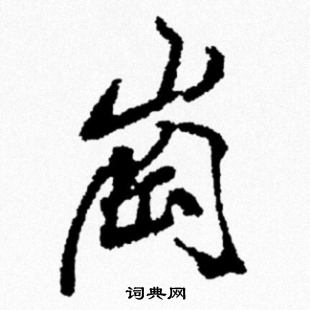 崗
词典网